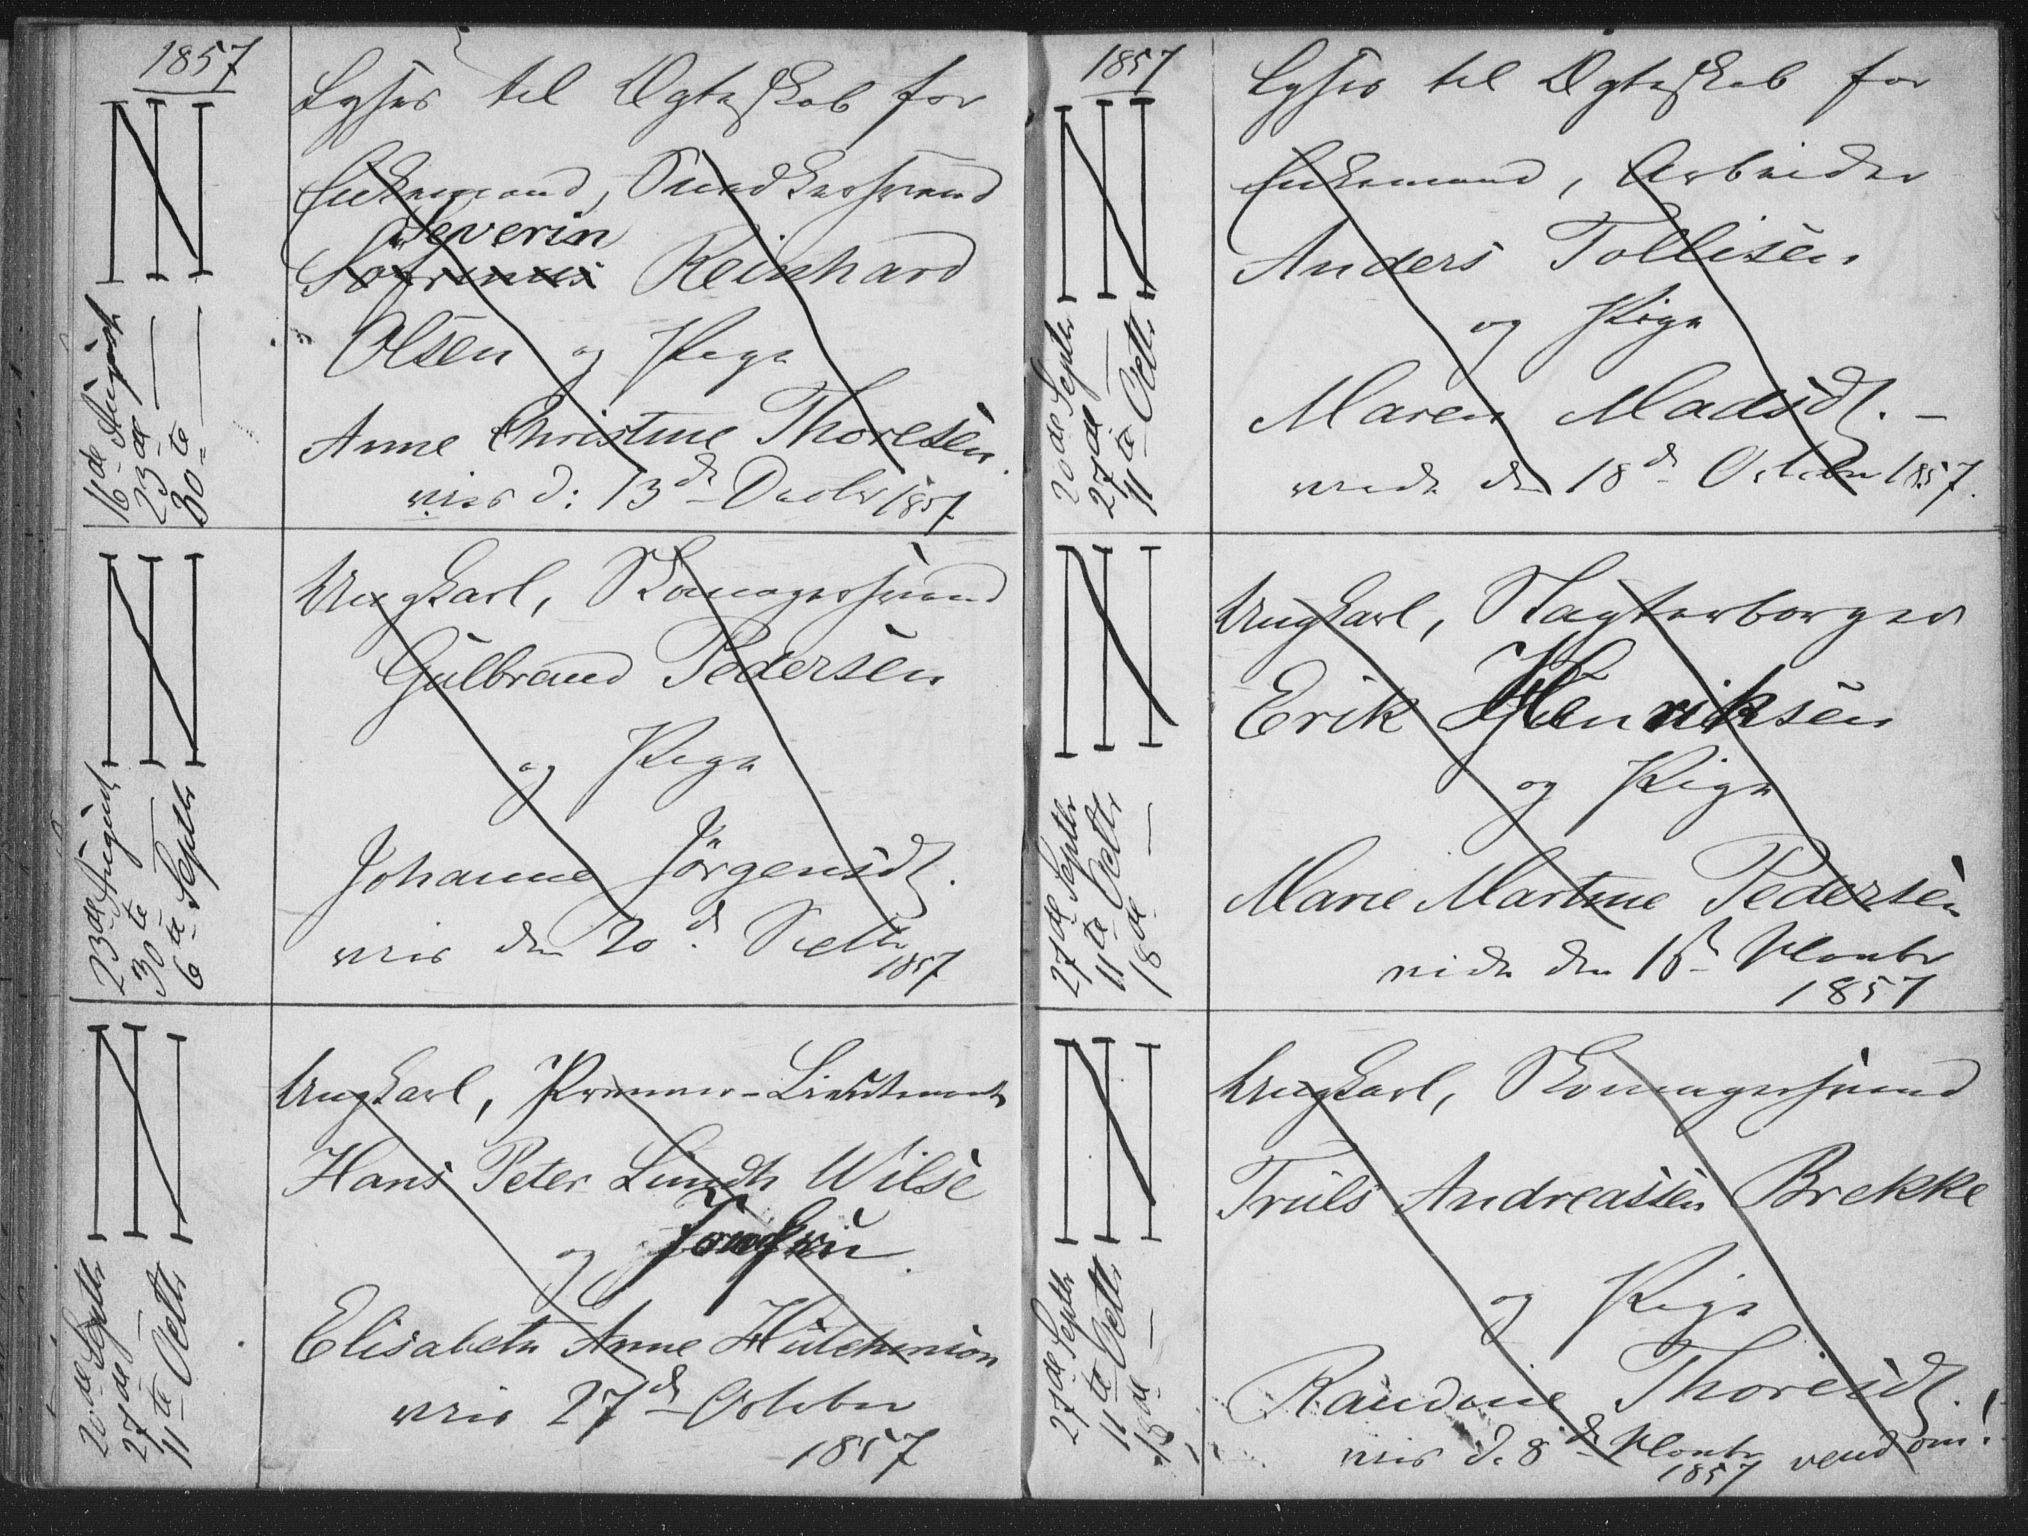 1857
Lyses til Ægteskab for
Enkemand, Snedkersvend
Severin
Reinhard
Olsen og Pige
Anne Christine Thoresen.
vies d: 13de Decbr 1857
16de August
23de —
30te —
Ungkarl, Skomagersvend
Gulbrand Pedersen
og Pige
Johanne Jörgensdt.
vies den 20de Septbr
1857
23de August
30te —
6te Septbr
Ungkarl, Premier-Lieutenant
Hans Peter Lundh Wilse
og Jomfru
Elisabeth Anne Hutchinson
vies 27de October
1857
20de Septbr
27de —
11te Octbr
1857
Lyses til Ægteskab for
Enkemand, Arbeider
Anders Tollisen
og Pige
Maren Madsdt. —
viede den 18de October 1857.
20de Septbr
27de —
11te Octbr
Ungkarl, Slagterborger
Erik Henriksen
og Pige
Marie Martine Pedersen
viede den 1ste Novbr
1857
27de Septbr
11te Octbr
18de —
Ungkarl, Skomagersvend
Truls Andreassen Brekke
og Pige
Randine Thoresdt.
vies d. 8de Novbr
1857 vend om!
27de Septbr
11te Octbr
18de —